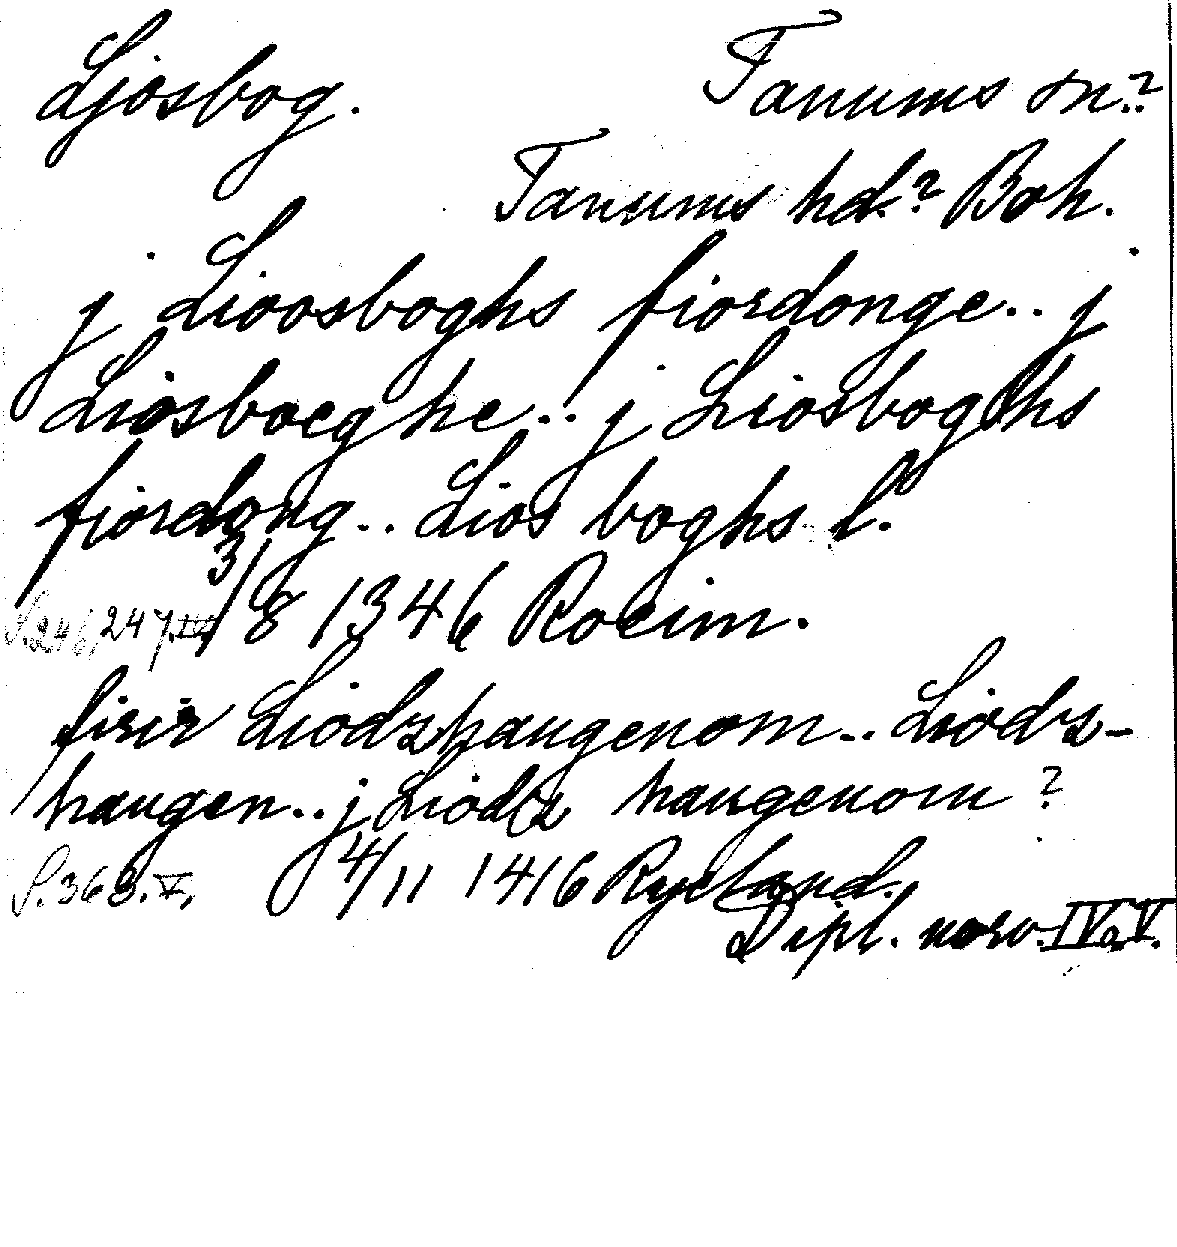 Ljosbog. Tanums sn?
Tanums hd.? Boh.
j Lioosboghs fiordonge.. j
Liosboeghe.. j Liosboghs
fiordong.. Lios boghs l.
S. 246, 247 3/8 1346 Roeim.
firir Liodzhaugenom.. Liodz-
haugen.. j Liodz haugenom?
S. 368. V. 4/11 1416 Ryeland.
Dipl. norv. IV o V.